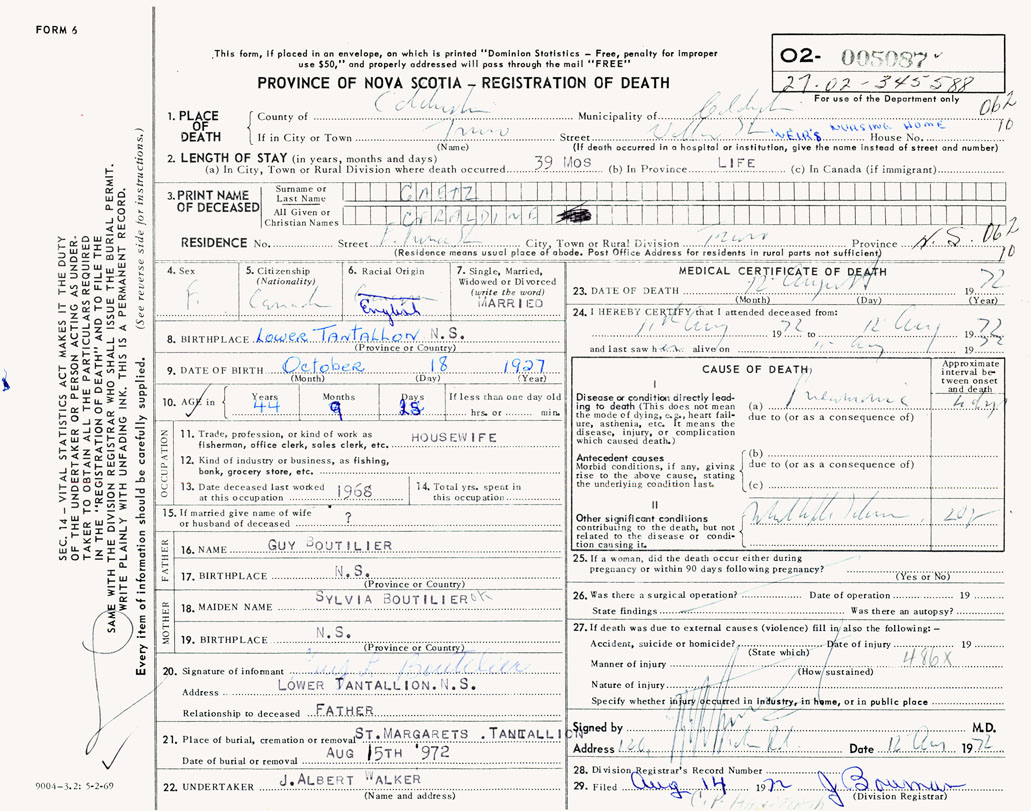 FORM 6
This form, if placed in an envelope, on which is printed "Dominion Statistics – Free, penalty for improper
use $50," and properly addressed will pass through the mail "FREE"
PROVINCE OF NOVA SCOTIA – REGISTRATION OF DEATH
O2- 005087
27-02-345588
For use of the Department only
062
10
1. PLACE OF DEATH
County of Colchester Municipality of Colchester
If in City or Town Truro Street House No. WEIR'S NURSING HOME
(Name) (If death occurred in a hospital or institution, give the name instead of street and number)
2. LENGTH OF STAY (in years, months and days)
(a) In City, Town or Rural Division where death occurred 39 MOS (b) In Province LIFE (c) In Canada (if immigrant)
3. PRINT NAME OF DECEASED
Surname or Last Name GAETZ
All Given or Christian Names GERALDINE
RESIDENCE No. Street City, Town or Rural Division Truro Province N.S. 062
10
(Residence means usual place of abode. Post Office Address for residents in rural parts not sufficient)
4. Sex F.
5. Citizenship (Nationality) Canada
6. Racial Origin English
7. Single, Married, Widowed or Divorced (write the word) MARRIED
8. BIRTHPLACE LOWER TANTALLON N.S.
(Province or Country)
9. DATE OF BIRTH October 18 1927
(Month) (Day) (Year)
10. AGE in Years 44 Months 9 Days 25 If less than one day old hrs. or min.
OCCUPATION
11. Trade, profession, or kind of work as fisherman, office clerk, sales clerk, etc. HOUSEWIFE
12. Kind of industry or business, as fishing, bank, grocery store, etc.
13. Date deceased last worked at this occupation 1968
14. Total yrs. spent in this occupation
15. If married give name of wife or husband of deceased ?
FATHER
16. NAME GUY BOUTILIER
17. BIRTHPLACE N.S.
(Province or Country)
MOTHER
18. MAIDEN NAME SYLVIA BOUTILIER OK
19. BIRTHPLACE N.S.
(Province or Country)
20. Signature of informant Guy L Boutilier
Address LOWER TANTALLION.N.S.
Relationship to deceased FATHER
21. Place of burial, cremation or removal ST.MARGARETS .TANTALLION
Date of burial or removal AUG 15TH '972
22. UNDERTAKER J.ALBERT WALKER
(Name and address)
MEDICAL CERTIFICATE OF DEATH
23. DATE OF DEATH 12 August 1972
(Month) (Day) (Year)
24. I HEREBY CERTIFY that I attended deceased from:
11th Aug 1972 to 12 Aug 1972
and last saw her alive on Aug 1972
CAUSE OF DEATH
Approximate interval between onset and death
I
Disease or condition directly leading to death (This does not mean the mode of dying, e.g., heart failure, asthenia, etc. It means the disease, injury, or complication which caused death.)
(a) Pneumonia 4 dys
due to (or as a consequence of)
Antecedent causes
Morbid conditions, if any, giving rise to the above cause, stating the underlying condition last.
(b)
due to (or as a consequence of)
(c)
II
Other significant conditions
contributing to the death, but not related to the disease or condition causing it.
25. If a woman, did the death occur either during
pregnancy or within 90 days following pregnancy?
(Yes or No)
26. Was there a surgical operation? Date of operation 19
State findings Was there an autopsy?
27. If death was due to external causes (violence) fill in also the following: –
Accident, suicide or homicide? Date of injury 19
(State which) 486X
Manner of injury
(How sustained)
Nature of injury
Specify whether injury occurred in industry, in home, or in public place
Signed by M.D.
Address Date 12 Aug 1972
28. Division Registrar's Record Number
29. Filed Aug 14 1972 J Bowman
(Division Registrar)
SEC. 14 – VITAL STATISTICS ACT MAKES IT THE DUTY
OF THE UNDERTAKER OR PERSON ACTING AS UNDER-
TAKER TO OBTAIN ALL THE PARTICULARS REQUIRED
IN THE "REGISTRATION OF DEATH" AND TO FILE THE
SAME WITH THE DIVISION REGISTRAR WHO SHALL ISSUE THE BURIAL PERMIT.
WRITE PLAINLY WITH UNFADING INK. THIS IS A PERMANENT RECORD.
Every item of information should be carefully supplied. (See reverse side for instructions.)
9004-3.2: 5-2-69